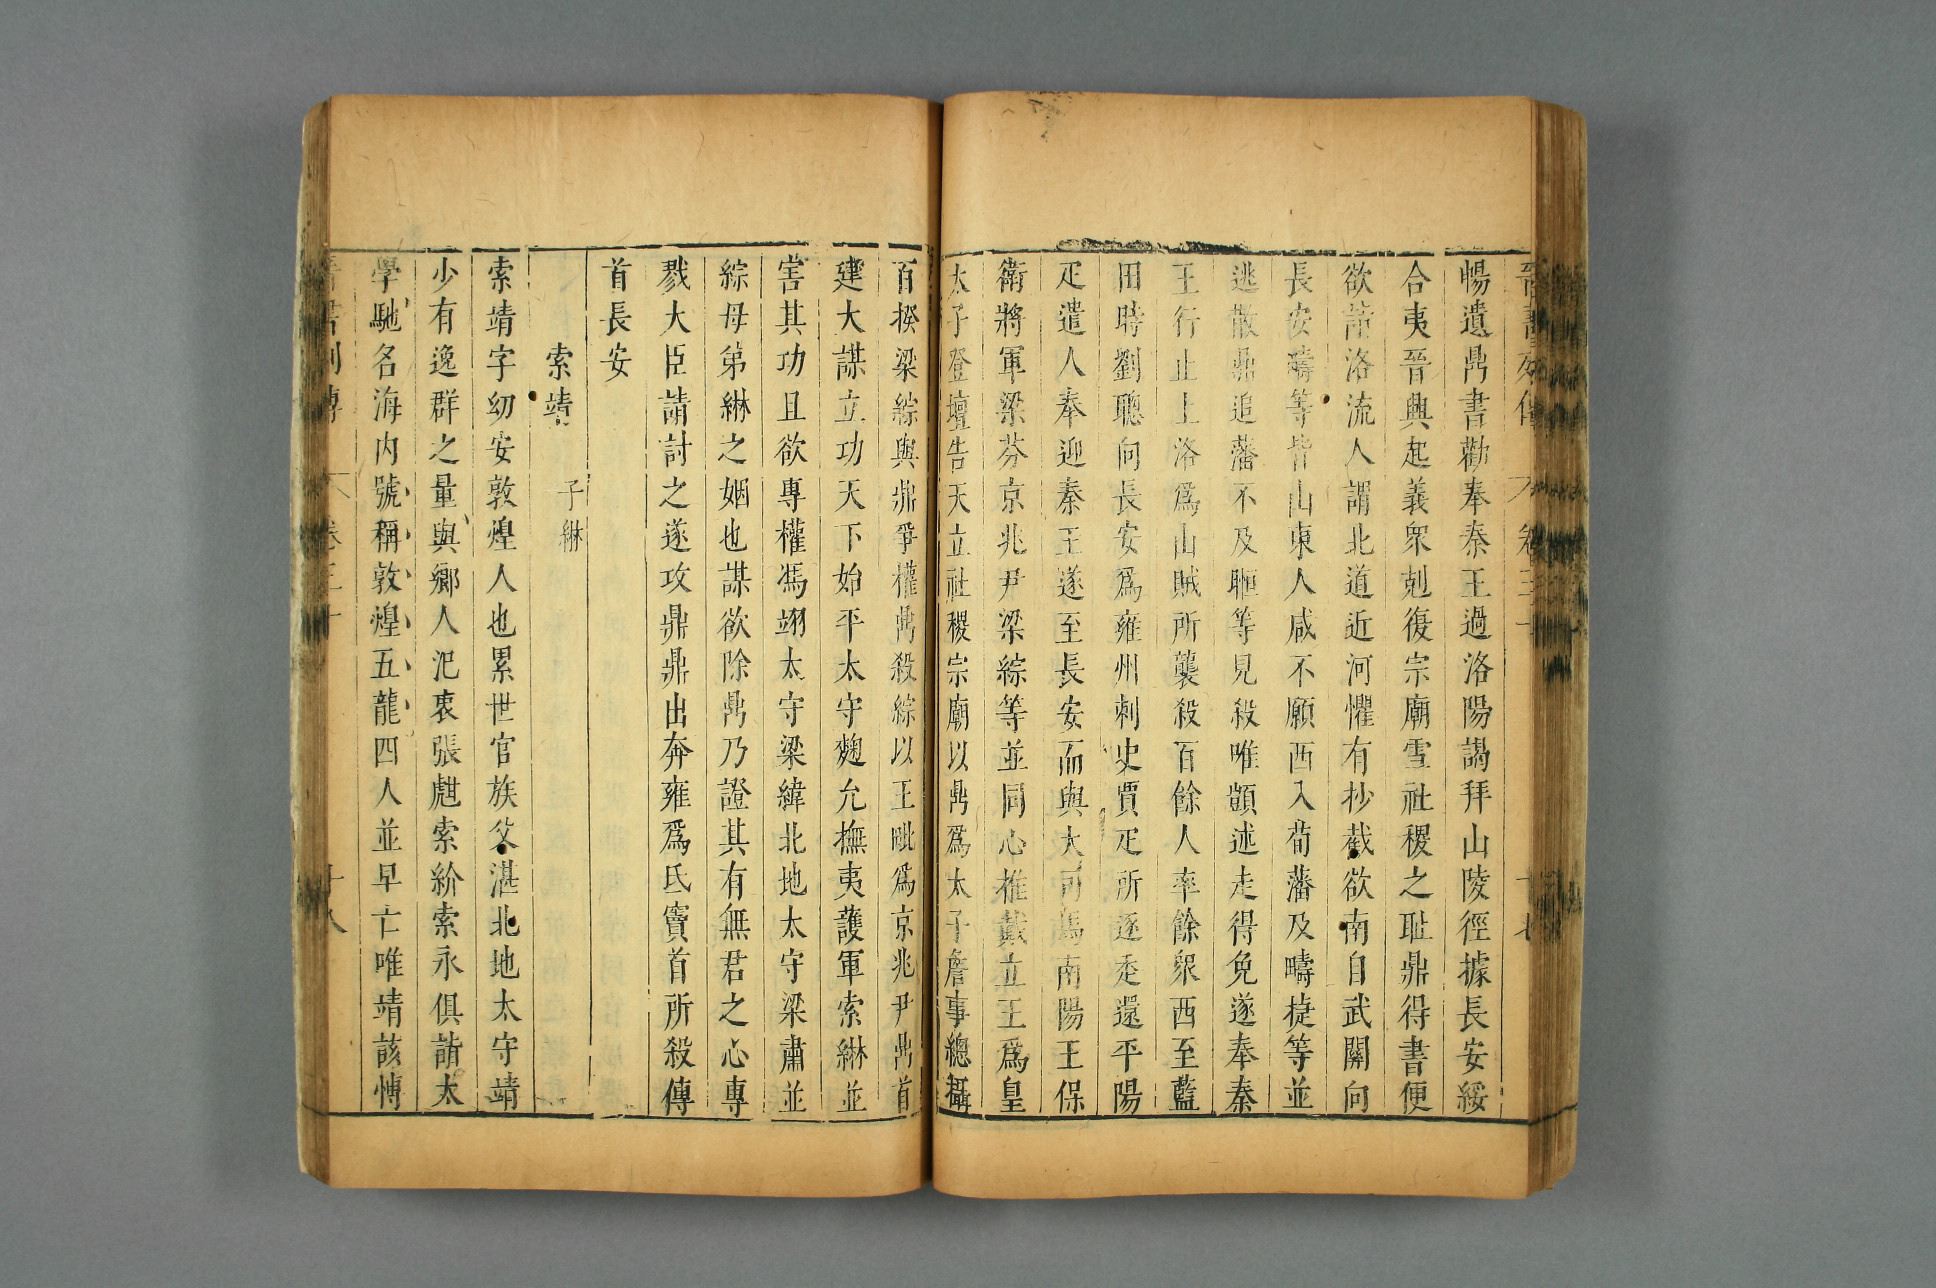 晉書列傳 卷三十 十七
暢遺鼎書勸奉秦王過洛陽謁拜山陵徑據長安綏
合夷晉興起義衆剋復宗廟雪社稷之恥鼎得書便
欲詣洛流人謂北道近河懼有抄截欲南自武關向
長安疇等皆山東人咸不願西入荀藩及疇捷等並
逃散鼎追藩不及暅等見殺唯顗述走得免遂奉秦
王行止上洛爲山賊所襲殺百餘人率餘衆西至藍
田時劉聰向長安爲雍州刺史賈疋所逐走還平陽
疋遣人奉迎秦王遂至長安而與大司馬南陽王保
衞將軍梁芬京兆尹梁綜等並同心推戴立王爲皇
太子登壇告天立社稷宗廟以鼎爲太子詹事總攝
百揆梁綜與鼎爭權鼎殺綜以王毗爲京兆尹鼎首
建大謀立功天下始平太守麴允撫夷護軍索綝並
害其功且欲專權馮翊太守梁緯北地太守梁肅並
綜母弟綝之姻也謀欲除鼎乃證其有無君之心專
戮大臣請討之遂攻鼎鼎出奔雍爲氐竇首所殺傳
首長安
索靖 子綝
索靖字幼安敦煌人也累世官族父湛北地太守靖
少有逸群之量與鄉人氾衷張甝索紒索永俱詣太
學馳名海内號稱敦煌五龍四人並早亡唯靖該愽
晉書列傳 卷三十 十八